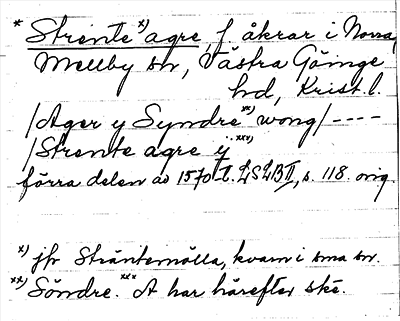 * Strente x) agre, f. åkrar i Norra
Mellby sn, Västra Göinge
hd, Krist. l.
/Ager y Syndre xx) wong/ ----
/Strente agre ÿ xxx)
förra delen av 1570 t. LSLB II, s. 118. orig.
x) jfr Sträntemölla, kvarn i sma sn.
xx) Söndre. xxx A har härefter ske.